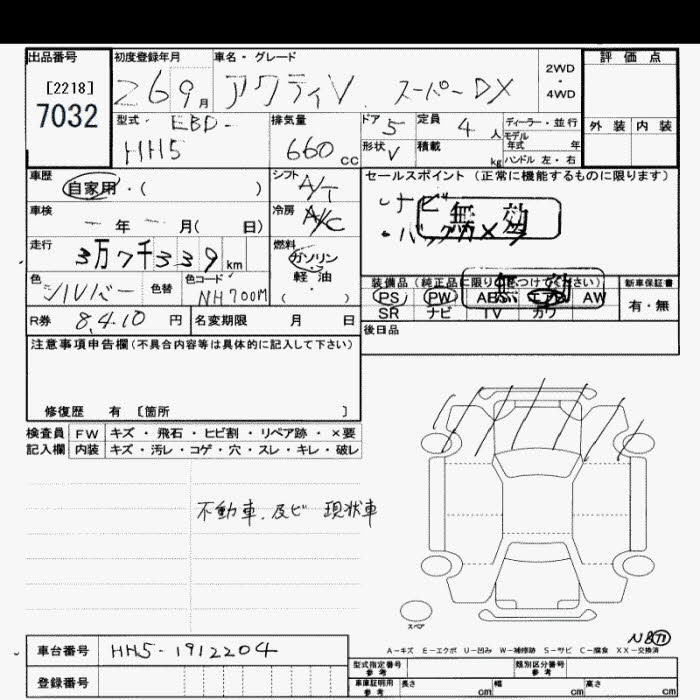 出品番号 初度登録年月 車名・グレード 2WD・4WD 評価点
[2218]
7032
26 9月 アクティV. スーパーDX
型式・ EBD-HH5 排気量 660cc ドア 5 定員 4人 ディーラー・並行
形状 V 積載 kg モデル年式 年
ハンドル 左・右
外装 内装
車歴 自家用・( ) シフト A/T セールスポイント (正常に機能するものに限ります)
車検 年 月( 日) 冷房 A/C
・ナビ
・バックカメラ
無効
走行 3万7千339km 燃料 ガソリン 軽・油 ( )
色 シルバー 色替 色コード NH700M
装備品 (純正品に限り○をつけてください)
無効
PS PW ABS エアB AW
SR ナビ TV カワ
新車保証書
有・無
R券 8,4,10円 名変期限 月 日
後日品
注意事項申告欄(不具合内容等は具体的に記入して下さい)
修復歴 有 〔箇所 〕
検査員 FW キズ・飛石・ヒビ割・リペア跡・×要
記入欄 内装 キズ・汚レ・コゲ・穴・スレ・キレ・破レ
不動車.及ビ 現状車
スペア
A－キズ E－エクボ U－凹み W－補修跡 S－サビ C－腐食 XX－交換済
車台番号 HH5-1912204
登録番号
型式指定番号 参考 類別区分番号 参考
車庫証明用 参考 長さ cm 幅 cm 高さ cm